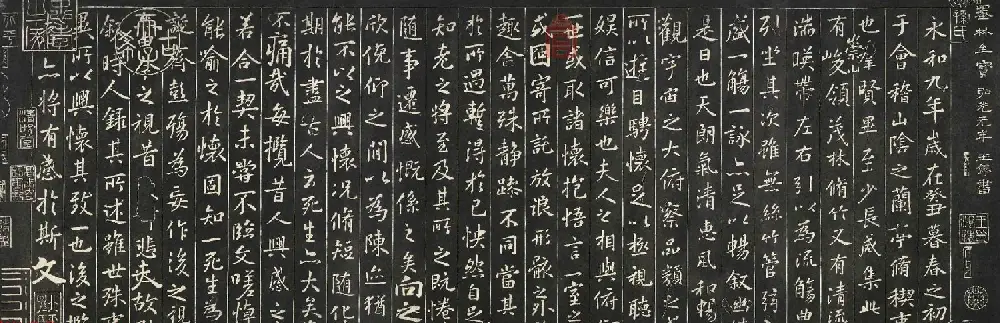 墨林至寶
永和九年歲在癸丑暮春之初
于會稽山陰之蘭亭脩禊事
也群賢畢至少長咸集此
有崇山峻領茂林脩竹又有清流
湍暎帶左右引以為流觴曲
列坐其次雖無絲竹管弦
盛一觴一詠亦足以暢敘幽
是日也天朗氣清惠風和暢
觀宇宙之大俯察品類之
所以遊目騁懷足以極視聽
娛信可樂也夫人之相與俯
一世或取諸懷抱悟言一室
或因寄所託放浪形骸之外
趣舍萬殊靜躁不同當其
於所遇蹔得於己怏然自足
知老之將至及其所之既惓
隨事遷感慨係之矣向之
欣俛仰之間以為陳迹猶
能不以之興懷況脩短隨化
期於盡古人云死生亦大矣
不痛哉每攬昔人興感之
若合一契未嘗不臨文嗟悼
能喻之於懷固知一死生為
誕齊彭殤為妄作後之視
之視昔悲夫故列
敘時人錄其所述雖世殊事
異所以興懷其致一也後之攬
亦將有感於斯文